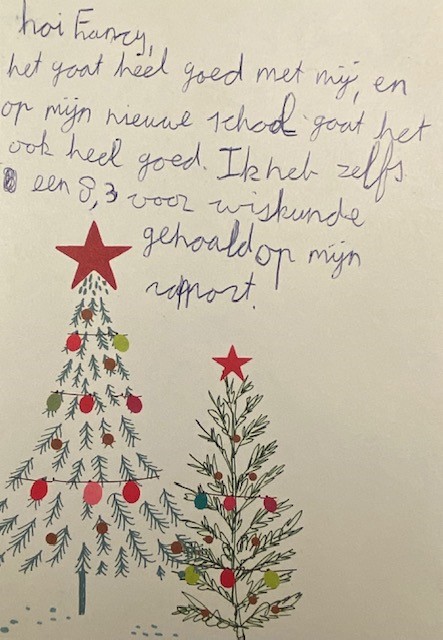 hoi Francy,
het gaat heel goed met mij, en
op mijn nieuwe school gaat het
ook heel goed. Ik heb zelfs
een 8,3 voor wiskunde
gehaald op mijn
rapport.